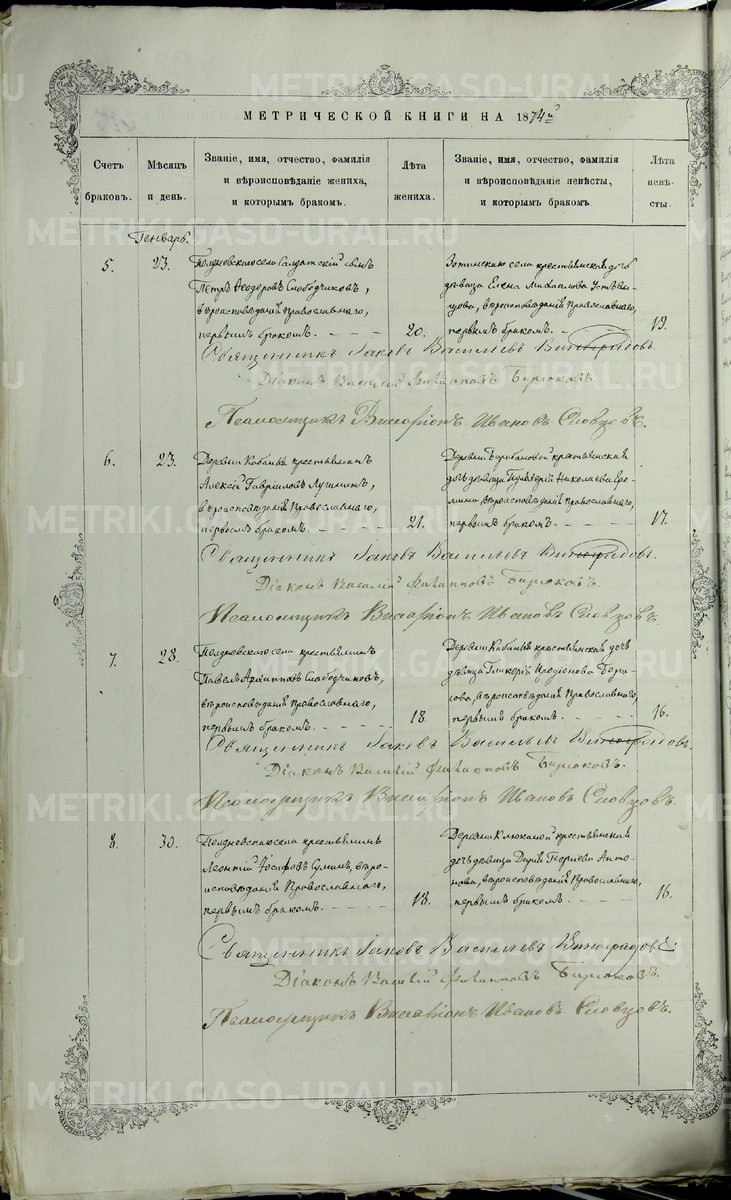 МЕТРИЧЕСКОЙ КНИГИ НА 1874й
Счетъ браковъ.
Мѣсяцъ и день.
Званіе, имя, отчество, фамилія
и вѣроисповѣданіе жениха,
и которымъ бракомъ.
Лѣта жениха.
Званіе, имя, отчество, фамилія
и вѣроисповѣданіе невѣсты,
и которымъ бракомъ.
Лѣта невѣсты.
Генварь.
5.
23.
села Солдатскій сынъ
Петръ Ѳеодоровъ Слободчиковъ,
вѣроисповѣданія Православнаго,
первымъ бракомъ.
20.
села крестьянская дочь
дѣвица Елена Михайлова
вѣроисповѣданія Православнаго,
первымъ бракомъ.
19.
Священникъ Іаковъ Васильевъ Виноградовъ.
Діаконъ Василій Филипповъ Бирюковъ.
Псаломщикъ Виссаріонъ Ивановъ Словцовъ.
6.
23.
Деревни крестьянинъ
Алексій Гавріиловъ
вѣроисповѣданія Православнаго,
первымъ бракомъ.
21.
Деревни крестьянская
дочь дѣвица Николаева
вѣроисповѣданія Православнаго,
первымъ бракомъ.
17.
Священникъ Іаковъ Васильевъ Виноградовъ.
Діаконъ Василій Филипповъ Бирюковъ.
Псаломщикъ Виссаріонъ Ивановъ Словцовъ.
7.
28.
села крестьянинъ
Павелъ Архипповъ Слободчиковъ,
вѣроисповѣданія Православнаго,
первымъ бракомъ.
18.
Деревни крестьянская дочь
дѣвица Гликерія
вѣроисповѣданія Православнаго,
первымъ бракомъ.
16.
Священникъ Іаковъ Васильевъ Виноградовъ.
Діаконъ Василій Филипповъ Бирюковъ.
Псаломщикъ Виссаріонъ Ивановъ Словцовъ.
8.
30.
села крестьянинъ
Леонтій Іосифовъ вѣро-
исповѣданія Православнаго,
первымъ бракомъ.
18.
Деревни крестьянская
дочь дѣвица Дарія Георгіева Анто-
нова, вѣроисповѣданія Православнаго,
первымъ бракомъ.
16.
Священникъ Іаковъ Васильевъ Виноградовъ
Діаконъ Василій Филипповъ Бирюковъ.
Псаломщикъ Виссаріонъ Ивановъ Словцовъ.
METRIKI.GASO-URAL.RU